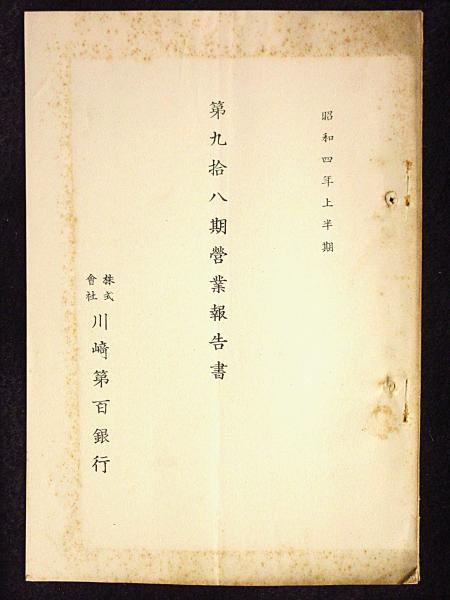 昭和四年上半期
第九拾八期營業報告書
株式會社川崎第百銀行